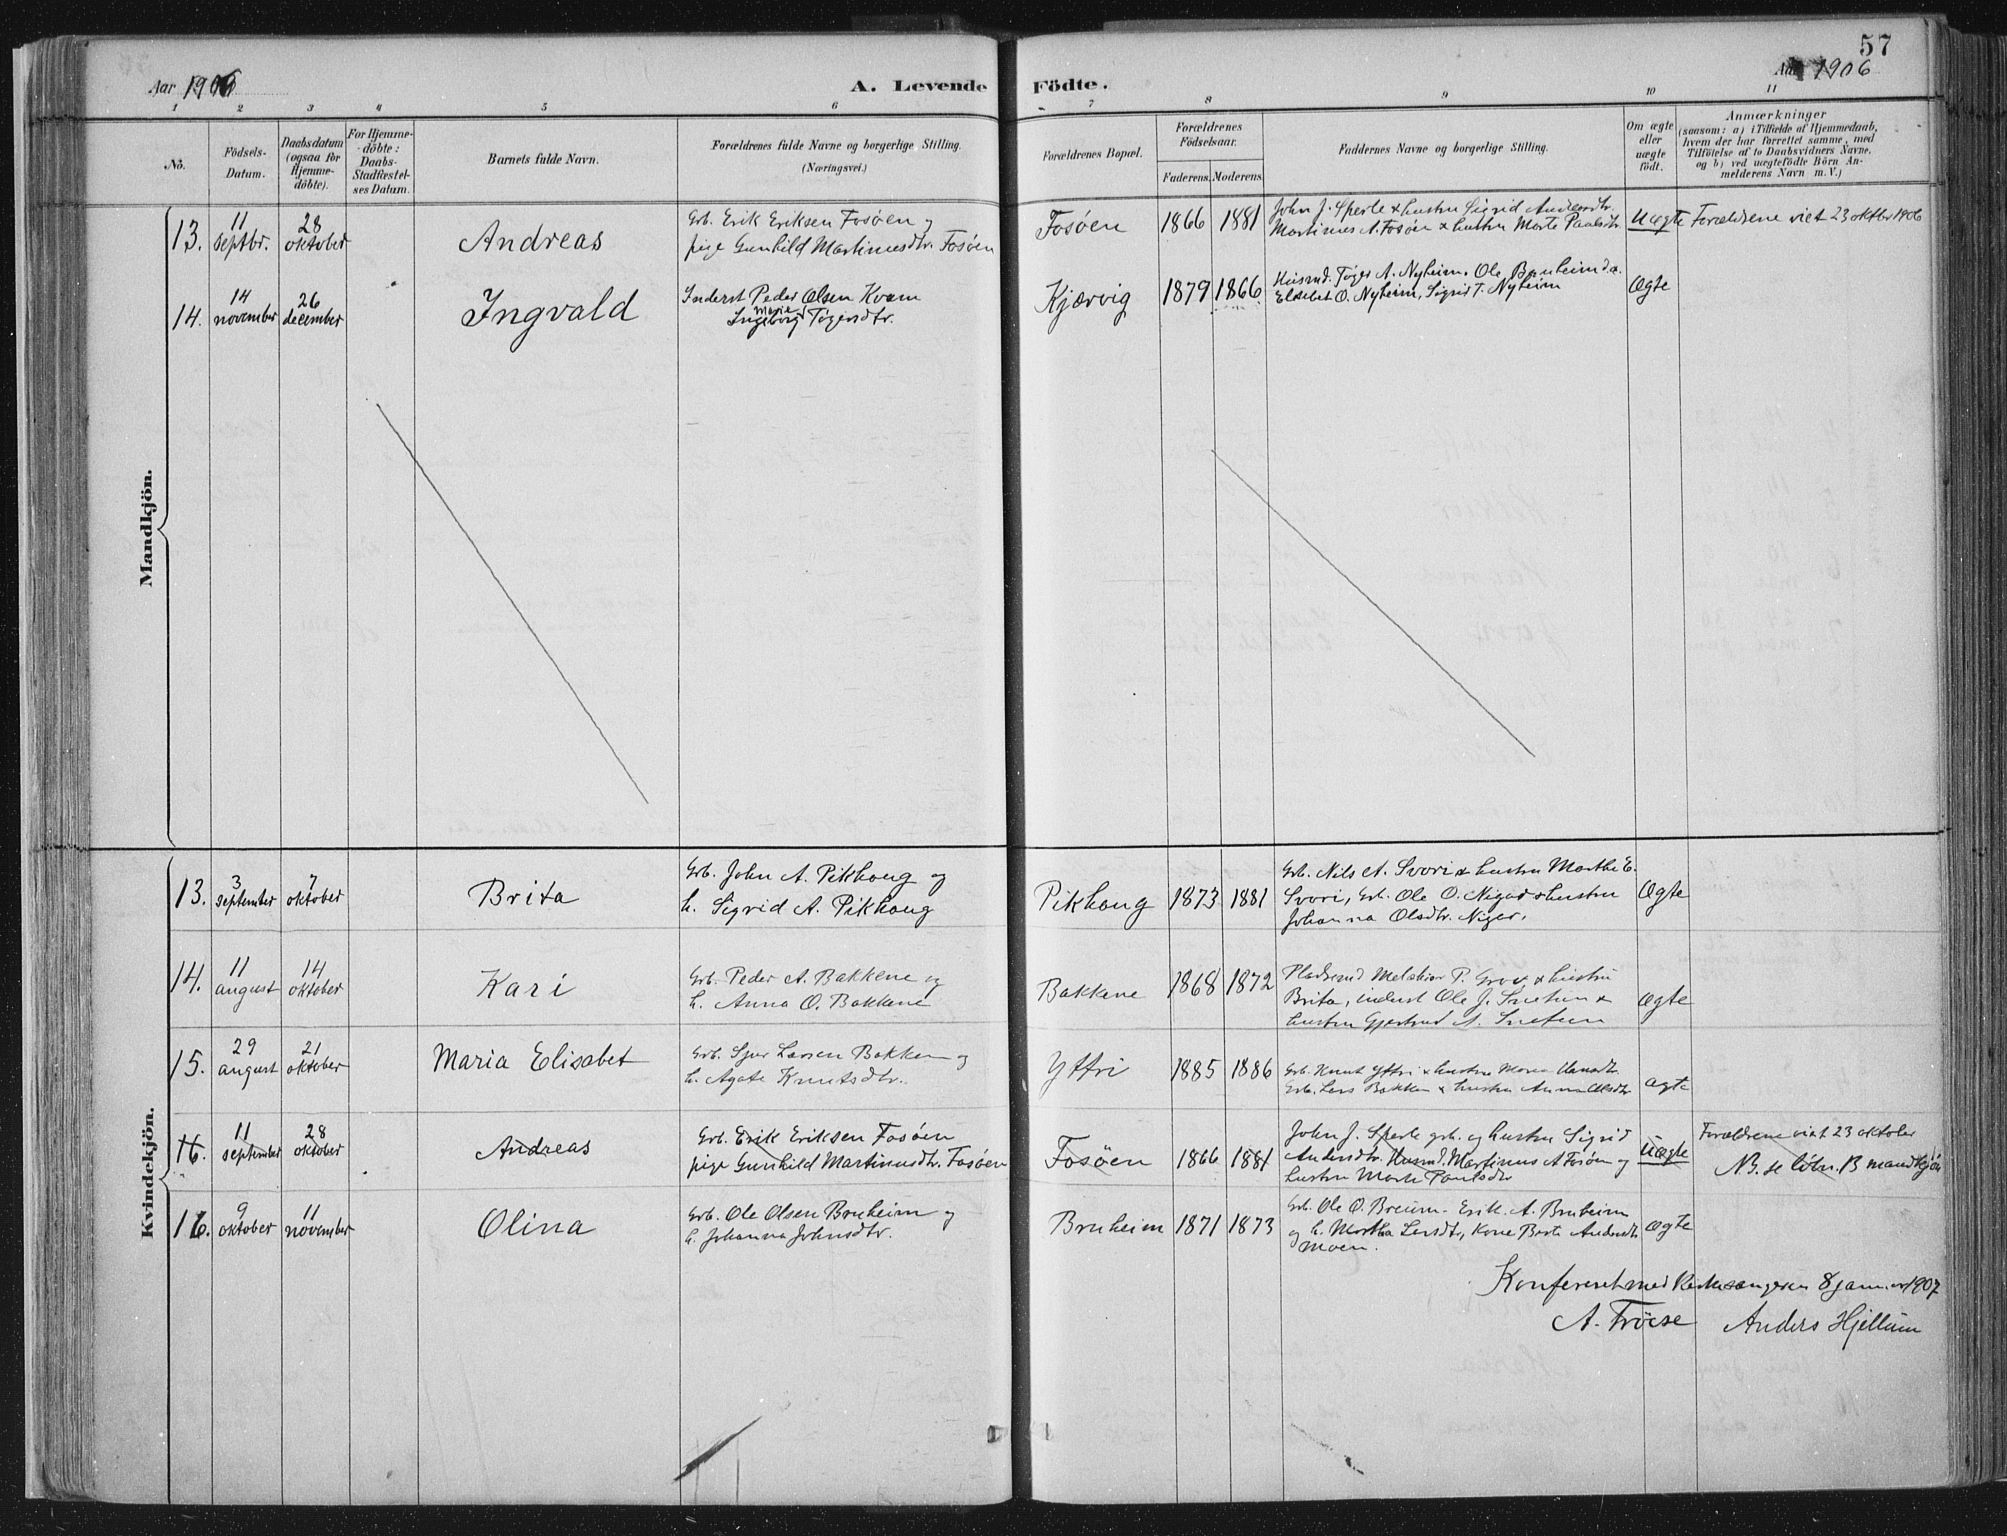 57
Aar 1906
A. Levende
Födte.
Aar 1906
1 2 3 4 5 6 7 8 9 10 11
No.
Födsels-
Datum.
Daabsdatum
(ogsaa for
Hjemme-
döbte).
For Hjemme-
döbte:
Daabs-
Stadfæstel-
ses Datum.
Barnets fulde Navn.
Forældrenes fulde Navne og borgerlige Stilling.
(Næringsvei.)
Forældrenes Bopæl.
Forældrenes
Födselsaar.
Faderens. Moderens.
Faddernes Navne og borgerlige Stilling.
Om ægte
eller
uægte
födt.
Anmærkninger
(saasom: a) i Tilfælde af Hjemmedaab,
hvem der har forrettet samme, med
Tilföielse af to Daabsvidners Navne,
og b) ved uægtefödte Börn An-
melderens Navn m. V.)
Mandkjön.
13.
11
septbr.
28
oktober
Andreas
Grb. Erik Eriksen Fosøen og
pige Gunhild Martinusdtr. Fosøen
Fosøen
1866
1881
John J. Sperle & hustru Sigrid Andersdtr.
Martinus A. Fosøen & hustru Marte Paulsdtr.
Uægte
Forældrene viet 23 oktbr 1906
14.
14
november
26
december
Ingvald
Inderst Peder Olsen Kvam
Marie
Ingeborg Tøgersdtr.
Kjærvig
1879
1866
Husmd. Tøger A. Nyheim, Ole Bruheimda.
Elsebet O. Nyheim, Sigrid T. Nyheim
Ægte
Kvindekjön.
13.
3
september
7
oktober
Brita
Grb. John A. Pikhaug og
h. Sigrid A. Pikhaug
Pikhaug
1873
1881
Grb. Nils A. Svori & hustru Marthe E.
Svori, Grb. Ole O. Nigard & hustru
Johanna Olsdtr. Niger.
Ægte
14.
11
august
14
oktober
Kari
Grb. Peder A. Bakkene og
h. Anna O. Bakkene
Bakkene
1868
1872
Pladsmd Melchior P. Grov & hustru
Brita, inderst Ole J. Snetun &
hustru Gjertrud A. Snetun
Ægte
15.
29
august
21
oktober
Maria Elisabet
Grb. Sjur Larsen Bakken og
h. Agate Knutsdtr.
Yttri
1885
1886
Grb. Knut Yttri & hustru Maria
Grb. Lars Bakken & hustru Anna Olsdtr
ægte
16.
11
september
28
oktober
Andreas
Grb. Erik Eriksen Fosøen
pige Gunhild Martinusdtr. Fosøen
Fosøen
1866
1881
John J. Sperle grb. og hustru Sigrid
Andersdtr. Husmd. Martinus A Fosøen og
hustru Marte Paulsdtr
Uægte
Forældrene viet 23 oktober
NB. se løbn. 13 mandkjøn
16.
9
oktober
11
november
Olina
Grb. Ole Olsen Bruheim og
h. Johanna Johnsdtr.
Bruheim
1871
1873
Grb. Ole O. Breum. Erik. A. Bruheim
og h. Martha Larsdtr, Kone Brita Andersdtr
Moen.
ægte
Konfereret med Kirkesangeren 8 januar 1907
A. Tröise
Anders Hjellum